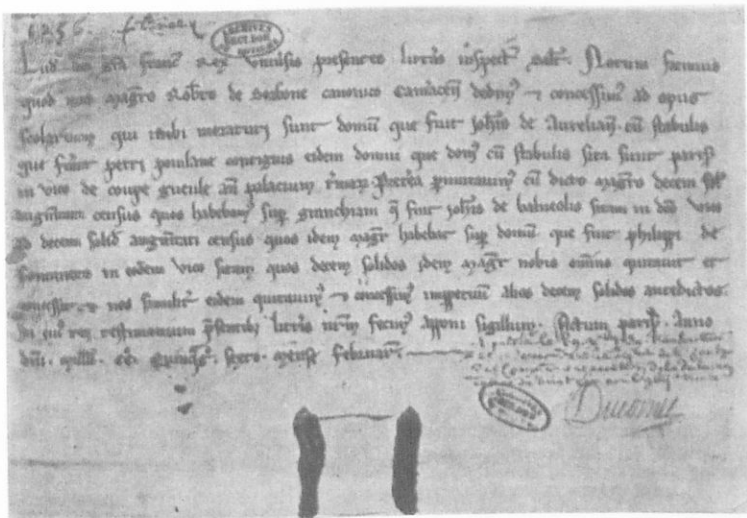 1256. febvrier
ARCHIVES SECT. DOM.
Lud. dei gra Franc Rex. Universis presentes litteras inspectur salt. Notum facimus
quod nos magro Robto de Sorbone canonico Cameracen dedim⁹ et concessim⁹ ad opus
scolarium qui inibi moraturi sunt domū que fuit Johis de Aurelian. cū stabulis
que fuerūt petri poinlane contiguis eidem domui que dom⁹ cū stabulis sita sunt paris⁹
in vico de coupe gueule an palacium Preterea pmutavim⁹ cū dicto magro decem sol
census quos habebam⁹ sup granchiam q̄ fuit Johis de balneolis sitam in dco vico
ad decem solid census quos idem magr habebat sup domū que fuit philippi de
in eodem vico sitam quos decem solidos idem magr nobis omnino quitavit et
concessit. et nos similit eidem quitavim⁹ et concessim⁹ imppetuū alios decem solidos antedictos.
In cui⁹ rei testimonium pntibus litteris nrm fecim⁹ apponi sigillum. Actum paris⁹. Anno
dni. millo. cc. quinqgo. sexto. mense februar.
Ducomu